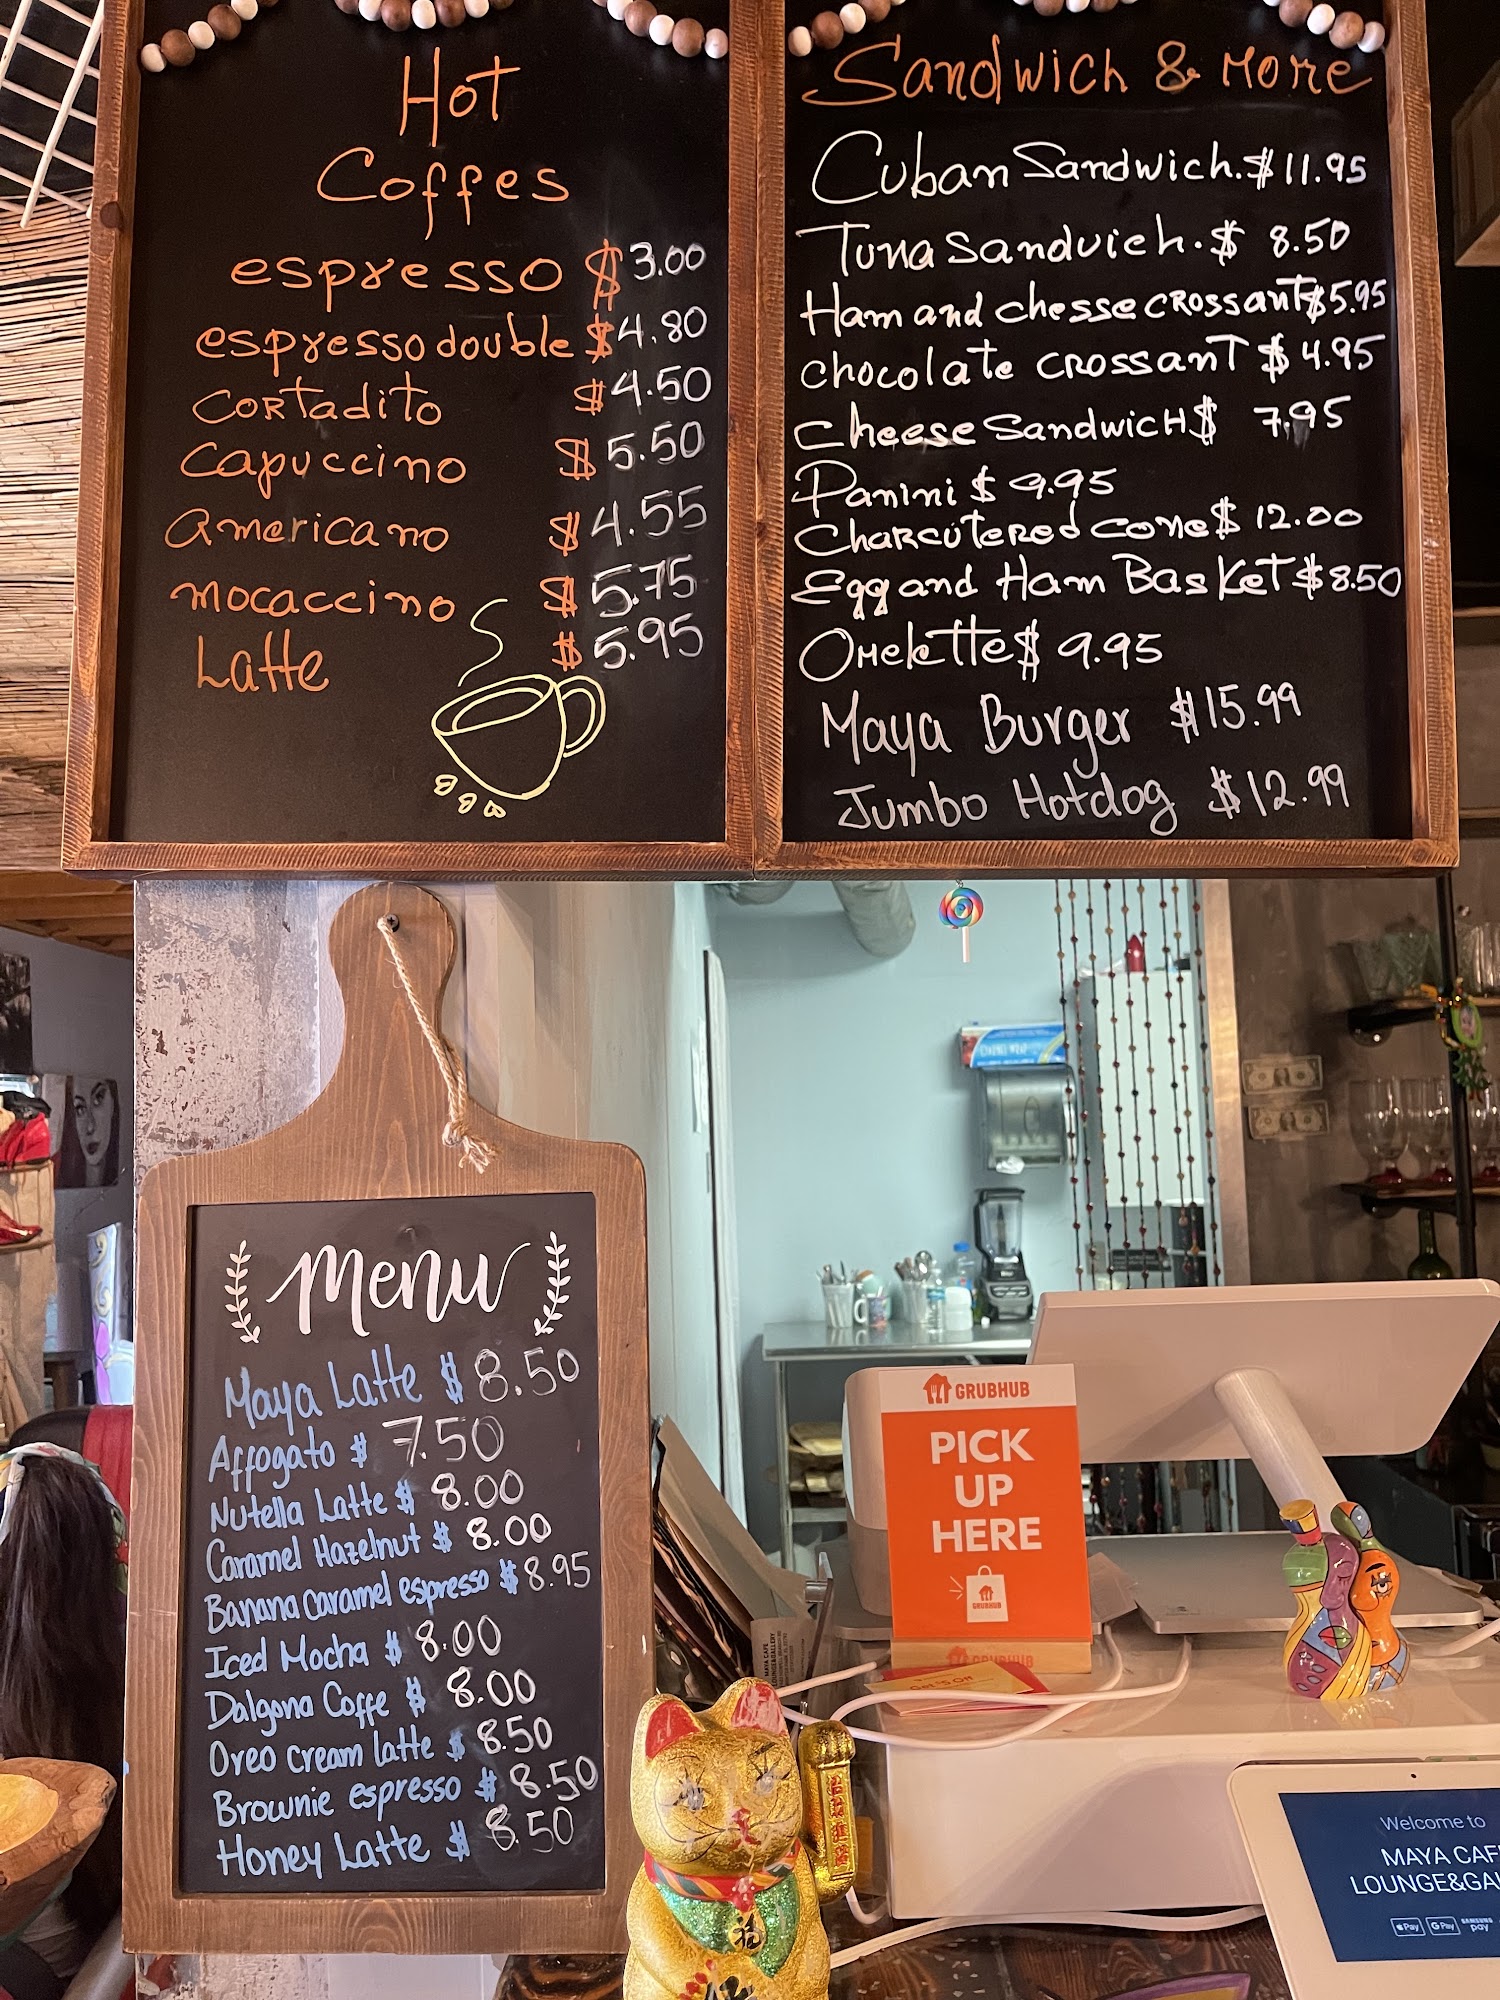 Hot
Coffes
espresso $ 3.00
espresso double $ 4.80
Cortadito $ 4.50
Capuccino $ 5.50
Americano $ 4.55
Mocaccino $ 5.75
Latte $ 5.95
Sandwich & More
Cuban Sandwich. $ 11.95
Tuna Sandvich. $ 8.50
Ham and chesse crossant $ 5.95
chocolate crossant $ 4.95
cheese sandwich $ 7.95
Panini $ 9.95
Charcutered cone $ 12.00
Egg and Ham Basket $ 8.50
Omelette $ 9.95
Maya Burger $ 15.99
Jumbo Hotdog $ 12.99
Menu
Maya Latte $ 8.50
Affogato $ 7.50
Nutella Latte $ 8.00
Caramel Hazelnut $ 8.00
Banana caramel espresso $ 8.95
Iced Mocha $ 8.00
Dalgona Coffe $ 8.00
Oreo cream latte $ 8.50
Brownie espresso $ 8.50
Honey Latte $ 8.50
GRUBHUB
PICK
UP
HERE
GRUBHUB
GRUBHUB
Get $5 Off
MAYA CAFE
LOUNGE&GALLERY
Welcome to
MAYA CAF
LOUNGE&GA
Pay G Pay SAMSUNG pay
福